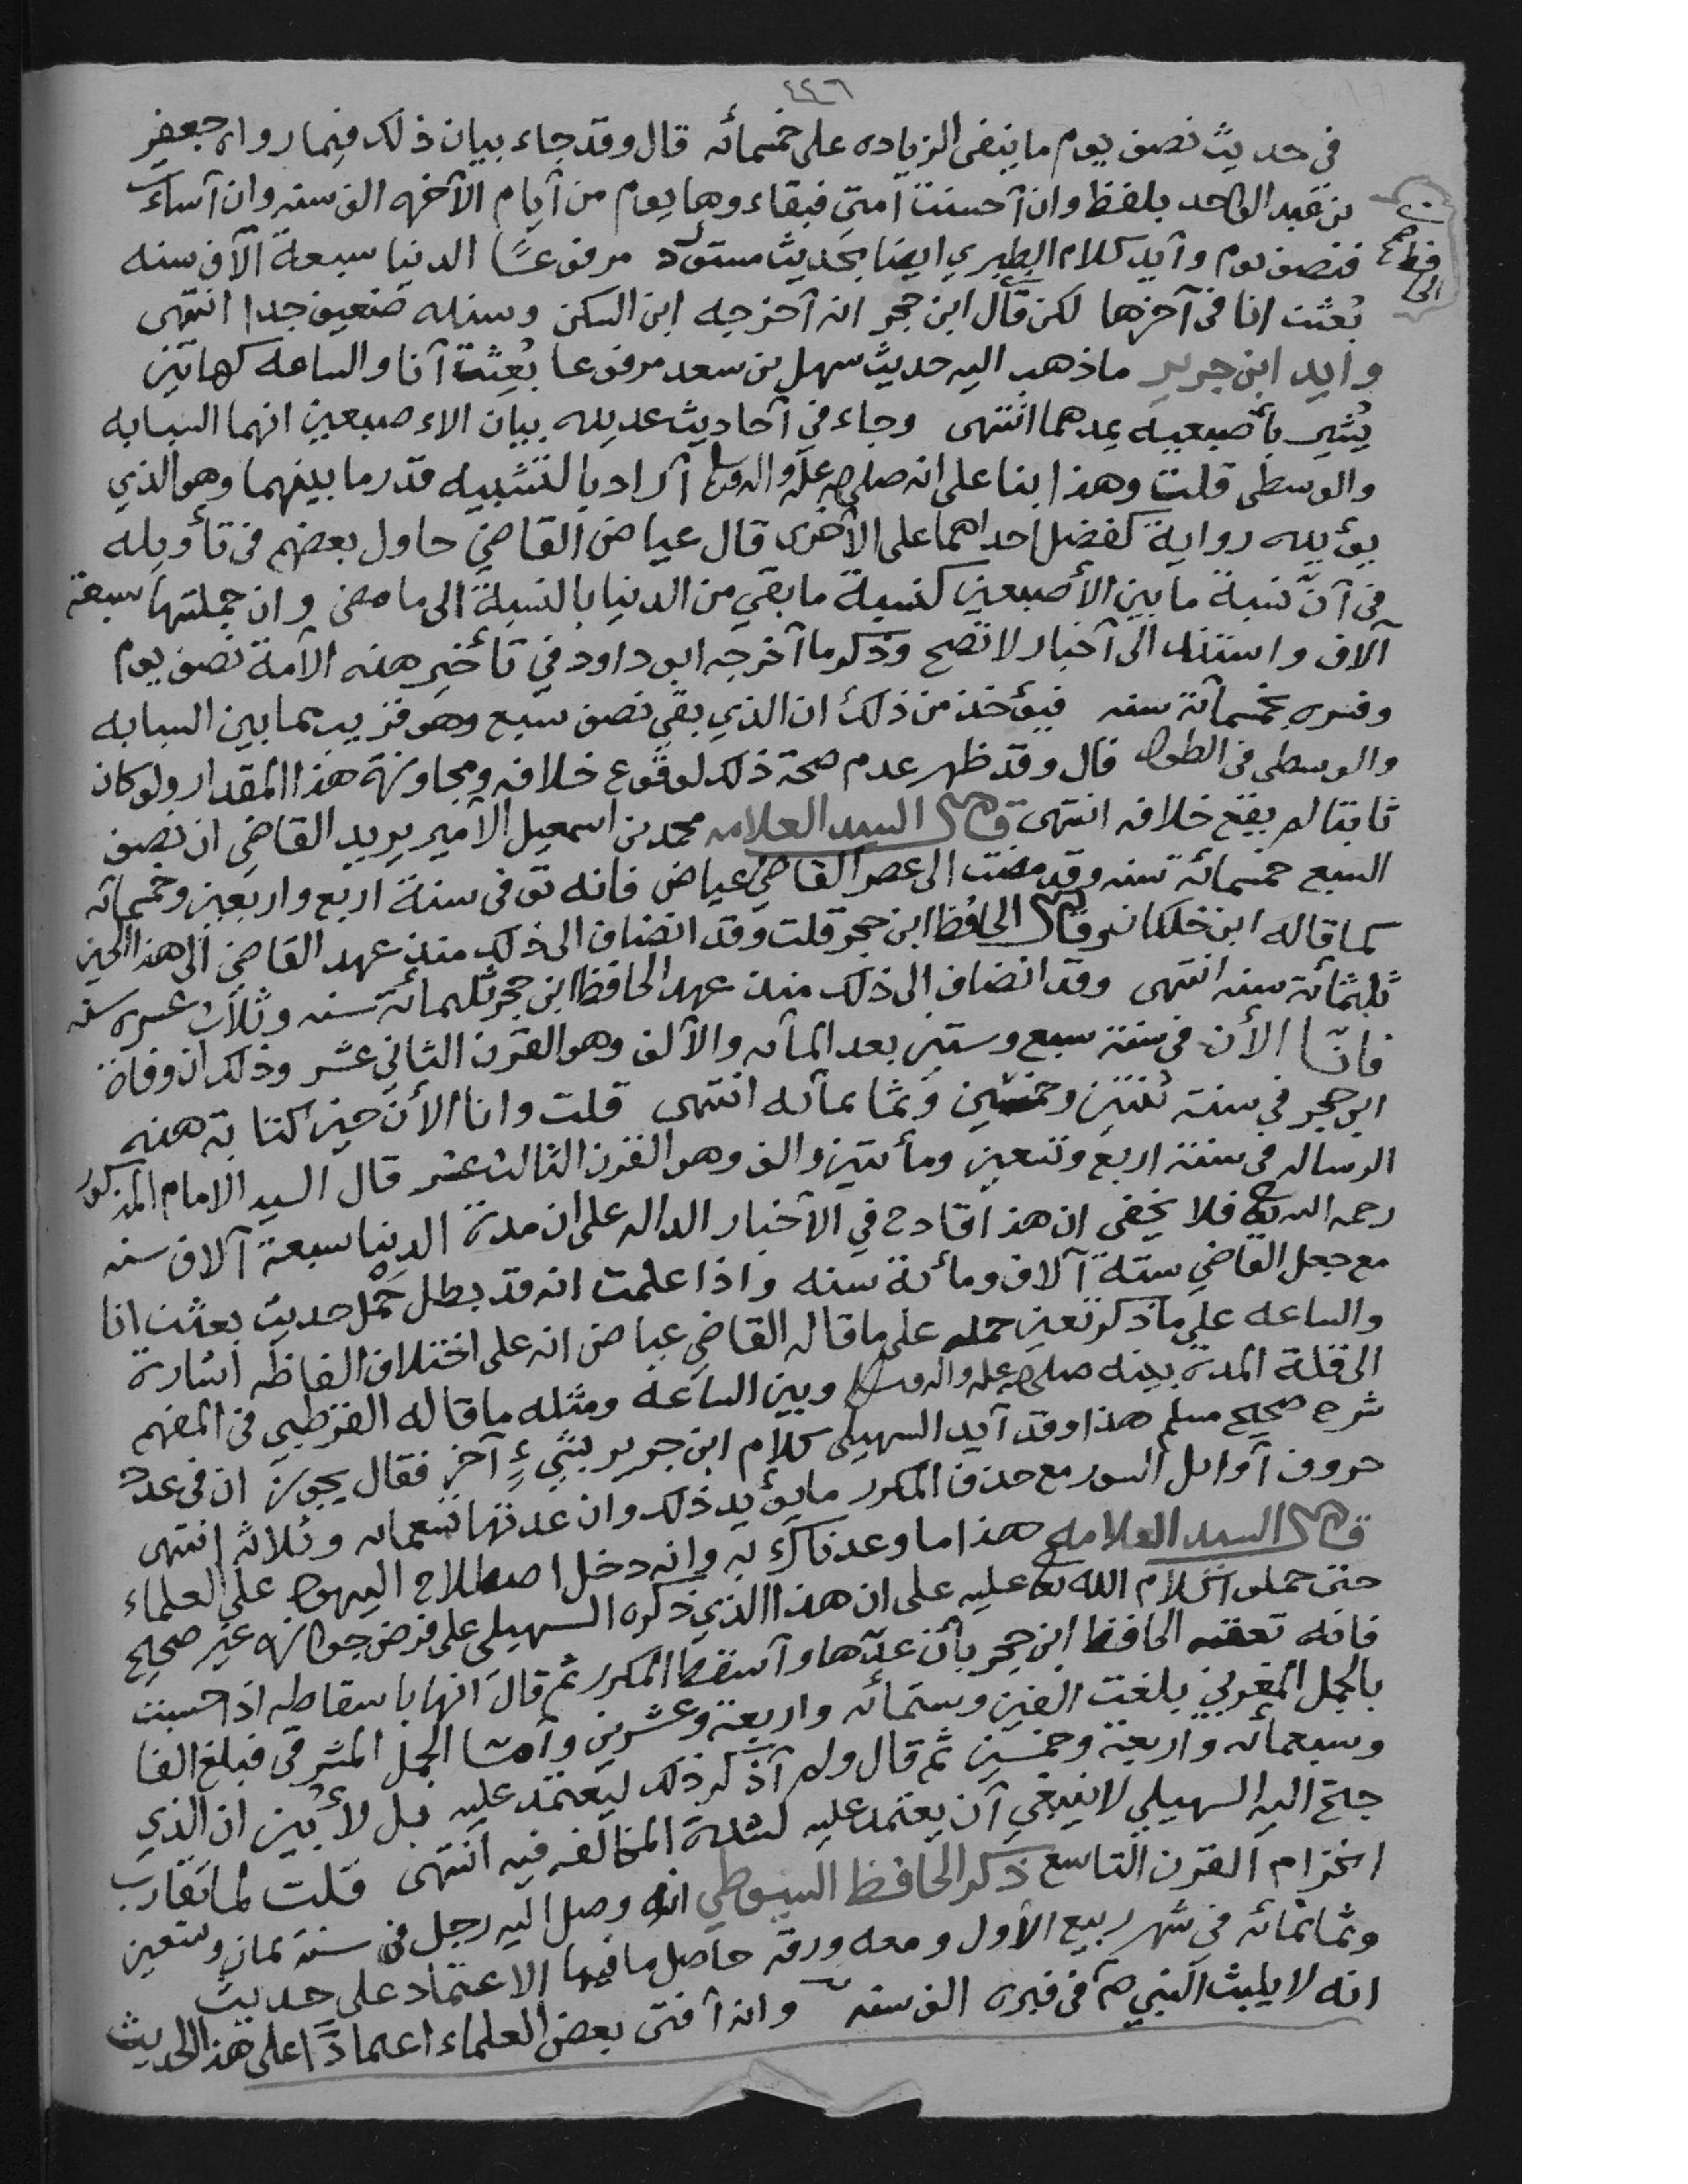 ٤٤٦
في حديث نصف يوم ما ينفى الزياده على خمسمائه قال وقد جاء بيان ذلك فيما رواه جعفر
بن عبد الواحد بلفظ وان أحسنت أمتي فبقاءوها يوم من أيام الآخره الف سنه وان أساءت
فنصف يوم وأيد كلام الطبري ايضا بحديث مستورد مرفوعًا الدنيا سبعة آلاف سنه
الحافظ
بُعثت انا في آخرها لكن قال ابن حجر انه أخرجه ابن السكن وسنده ضعيف جدا انتهى
وايد ابن جرير ما ذهب اليه حديث سهل بن سعد مرفوعا بُعِثت أنا والساعه كهاتين
يُشير بأصبعيه يمدهما انتهى وجاء في أحاديث عديده بيان الاءصبعين انهما السبابه
والوسطى قلت وهذا بنا على انه صلى الله عليه واله وسلم أراد بالتشبيه قدر ما بينهما وهو الذي
يؤيده رواية كفضل احداهما على الأخرى قال عياض القاضي حاول بعضهم في تأويله
في أنّ نسبة ما بين الأصبعين كنسبة ما بقي من الدنيا بالنسبة الى ما مضى وان جملتها سبعة
آلاف واستند الى أخبار لا تصح وذكر ما أخرجه ابو داود في تأخير هذه الأمة نصف يوم
وفسره بخمسمائة سنه فيؤخذ من ذلك ان الذي بقي نصف سبع وهو قريب مما بين السبابه
والوسطى في الطول قال وقد ظهر عدم صحة ذلك لوقوع خلافه ومجاوزة هذا المقدار ولو كان
ثابتا لم يقع خلافه انتهى قال السيد العلامه محمد بن اسمعيل الأمير يريد القاضي ان نصف
السبع خمسمائة سنه وقد مضت الى عصر القاضي عياض فانه توفى سنة اربع واربعين وخمسمائه
كما قاله ابن خلكان وقال الحافظ ابن حجر قلت وقد انضاف الى ذلك منذ عهد القاضي الى هذا الحين
ثلثمائة سنه انتهى وقد انضاف الى ذلك منذ عهد الحافظ ابن حجر ثلثمائة سنه وثلاث عشره سنه
فانّا الأن في سنة سبع وستين بعد المائه والألف وهو القرن الثاني عشر وذلك ان وفاة
ابن حجر في سنة ثنتين وخمسين وثمانمائه انتهى قلت وانا الأن حين كتابة هذه
الرساله في سنة اربع وتسعين ومأتين والف وهو القرن الثالث عشر قال السيد الامام المذكور
رحمه الله تع فلا يخفى ان هذا قادح في الأخبار الداله على ان مدة الدنيا سبعة آلاف سنه
مع جعل القاضي ستة آلاف ومائة سنه واذا علمت انه قد بطل حَمْل حديث بعثت انا
والساعه على ما ذكر تعين حمله على ما قاله القاضي عياض انه على اختلاف الفاظه اشارة
الى قلة المدة بينه صلى الله عليه واله وسلم وبين الساعه ومثله ما قاله القرطبي في المفهم
شرح صحيح مسلم هذا وقد أيد السهيلى كلام ابن جرير بشيءٍ آخر فقال يجوز ان في عدد
حروف أوائل السور مع حذف المكرر ما يؤيد ذلك وان عدتها تسعمائه وثلاثه انتهى
قال السيد العلامه هذا ما وعدناك به وانه دخل اصطلاح اليهود على العلماء
حتى حملوا كلام الله تع عليه على ان هذا الذي ذكره السهيلي على فرض جوازه غير صحيح
فانه تعقبه الحافظ ابن حجر بأن عدّها وأسقط المكرر ثم قال انها باسقاطه اذا حسبت
بالجمل المغربي بلغت الفين وستمائه واربعة وعشرين وأما الجمل المشرقي فبلغ الفا
وسبعمائه واربعة وخمسين ثم قال ولم أذكر ذلك ليعتمد عليه بل لأبين ان الذي
جنح اليه السهيلي لا ينبغي أن يعتمد عليه لشدة المخالفه فيه انتهى قلت لما تقارب
انخزام القرن التاسع ذكر الحافظ السيوطي انه وصل اليه رجل في سنة ثمان وتسعين
وثمانمائه في شهر ربيع الأول ومعه ورقه حاصل ما فيها الاعتماد على حديث
انه لا يلبث النبي صلم في قبره الف سنه وانه أفتى بعض العلماء اعتمادًا على هذا الحديث